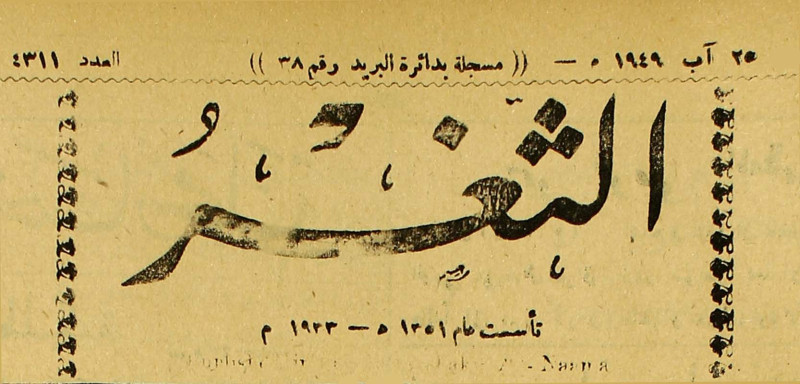 ٢٥ آب ١٩٤٩ ٥ — (( مسجلة بدائرة البريد رقم ٣٨ )) العدد ٤٣١١
الثغر
تأسست عام ١٣٥١ ٥ — ١٩٣٣ م